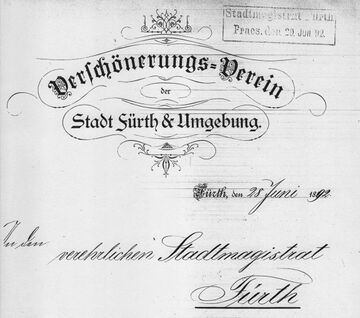 Stadtmagistrat Fürth
Praes. den 29. JUN 92.
Verschönerungs-Verein
der
Stadt Fürth & Umgebung.
Fürth, den 28 Juni 1892.
An den
verehrlichen Stadtmagistrat
Fürth